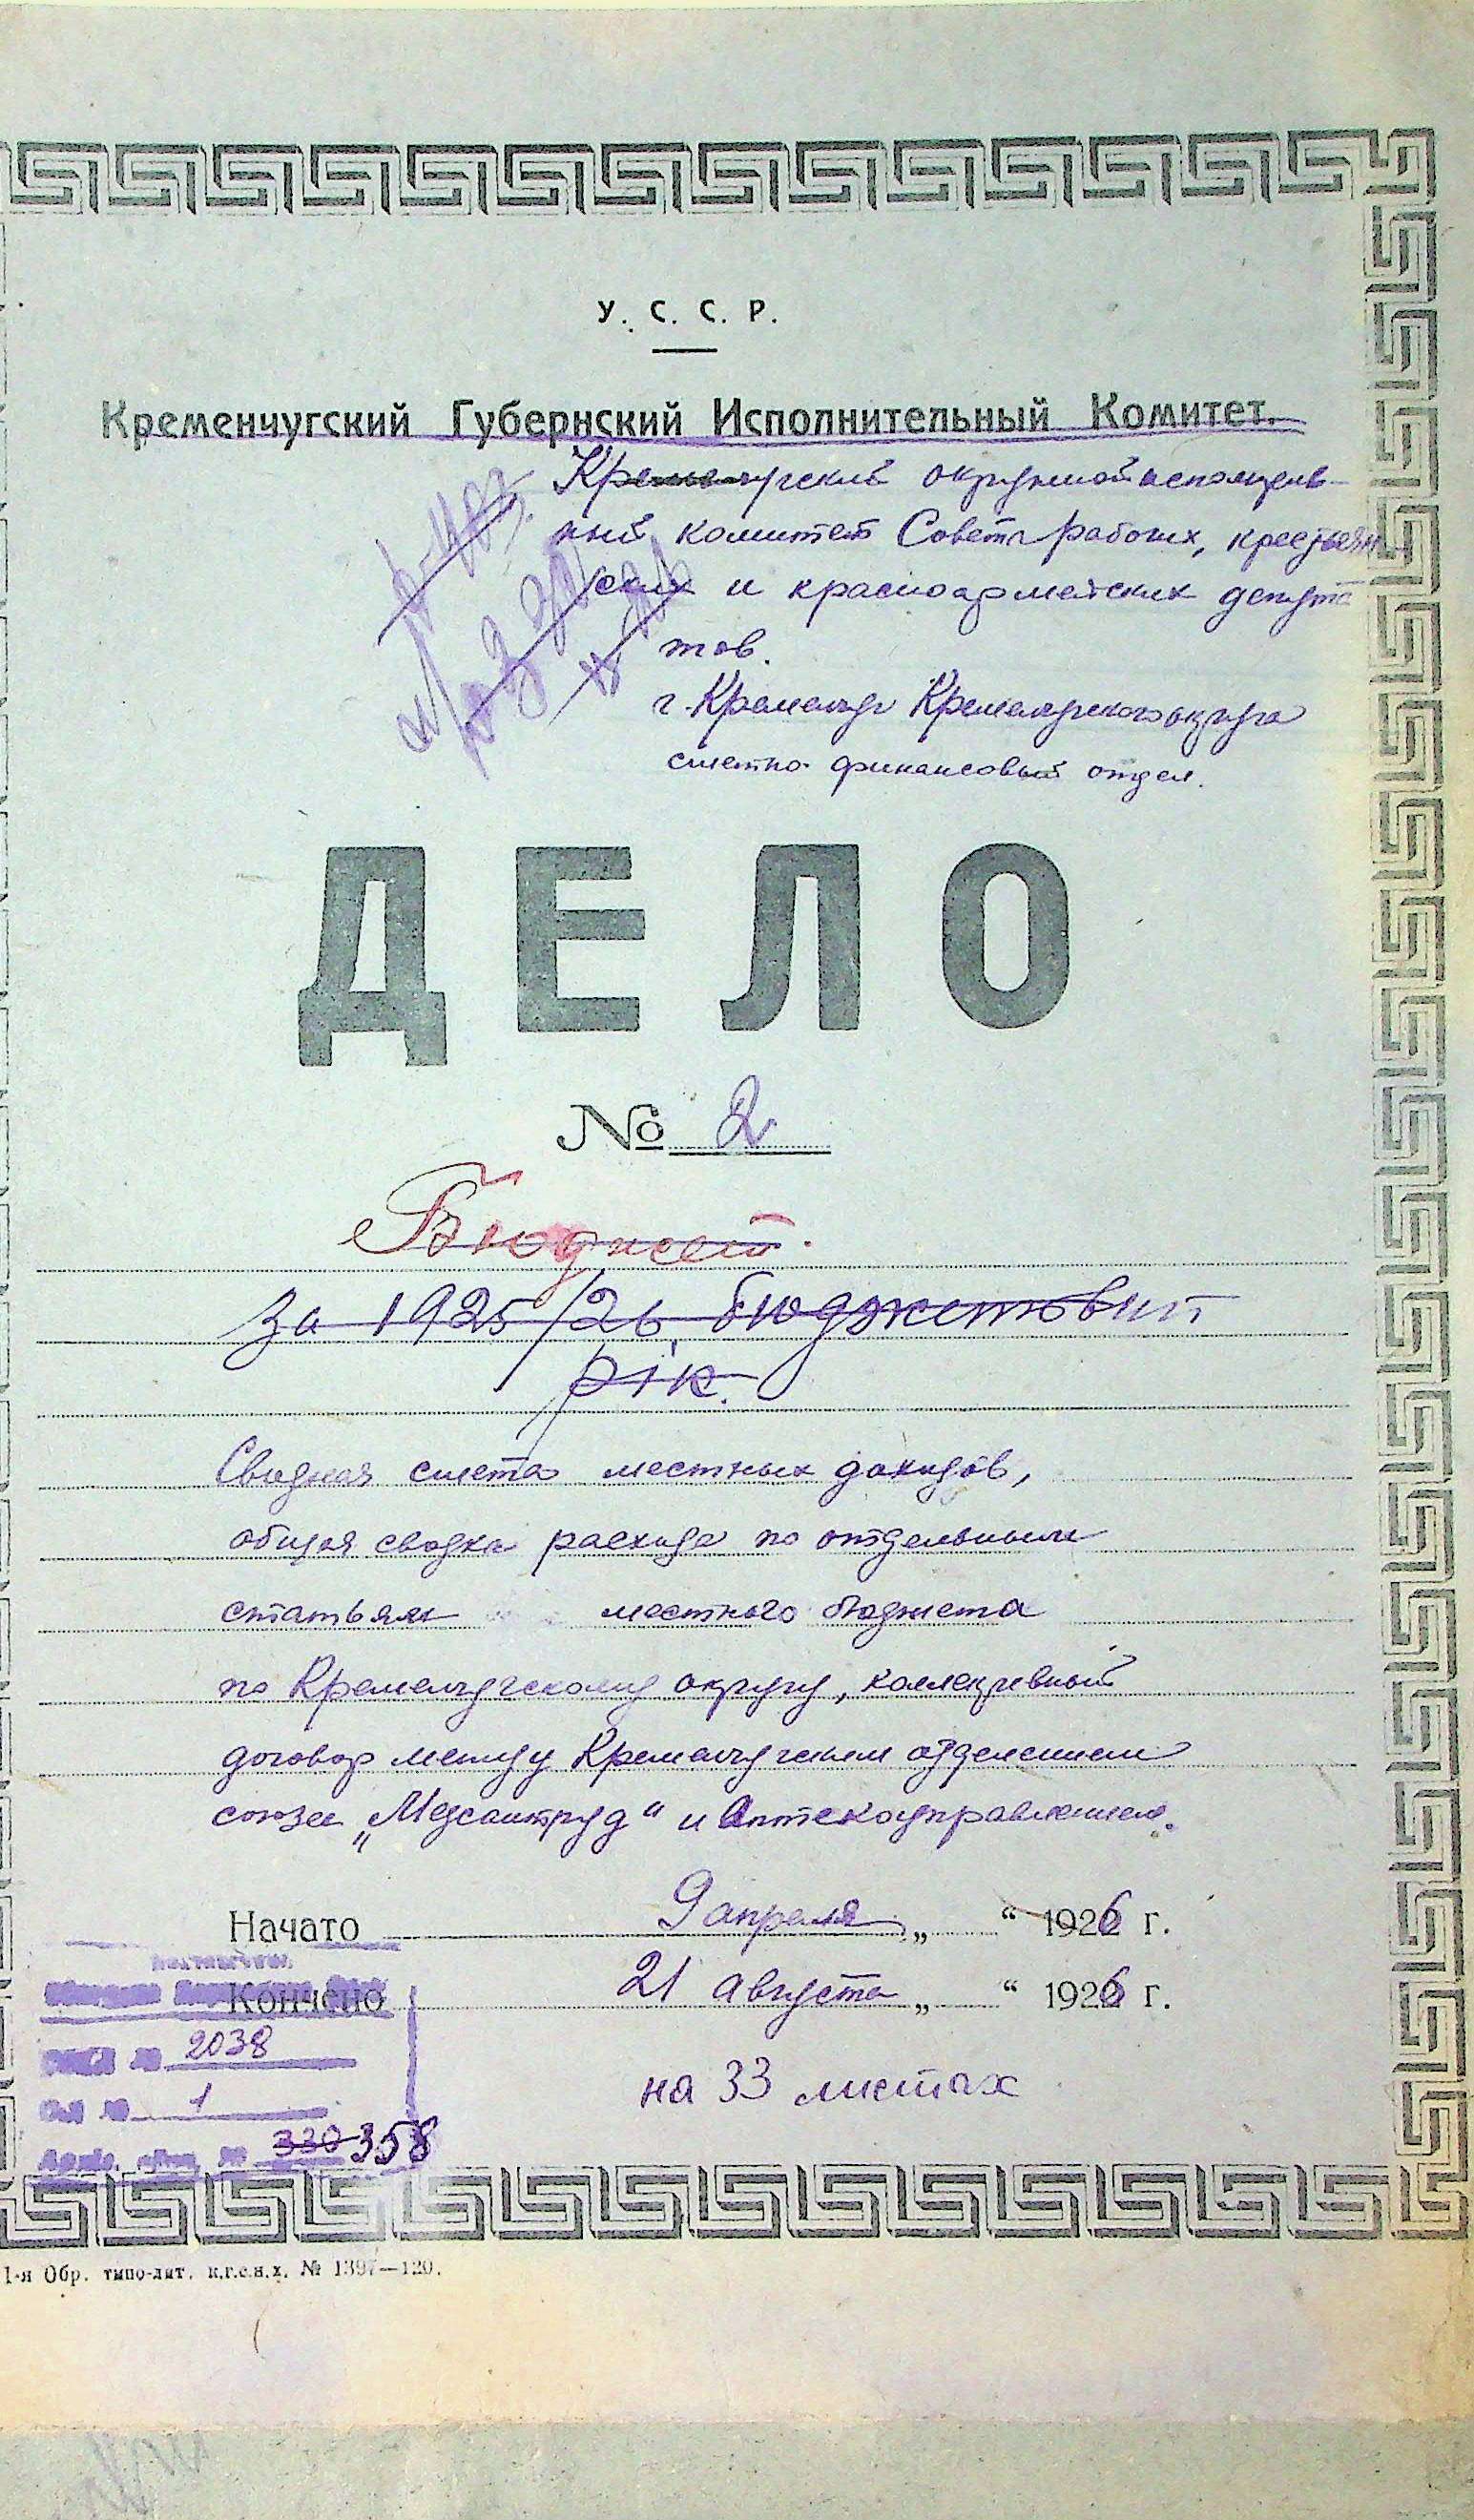 У. С. С. Р.
Кременчугский Губернский Исполнительный Комитет.
Кременчугский окружной исполнитель-
ный комитет Совета рабочих, крестьян
ских и красноармейских депута
тов.
г. Кременчуг Кременчугского округа
сметно-финансовый отдел.
ДЕЛО
№ 2
Бюджет.
За 1925/26 бюджетовий
рік.
Сводная смета местных доходов,
общая сводка расхода по отдельным
статьям местного бюджета
по Кременчугскому округу, коллективный
договор между Кременчугским отделением
союза „Медсантруд“ и Аптекоуправлением.
Начато 9 апреля „ “ 1926 г.
Кончено 21 августа „ “ 1926 г.
2038
на 33 листах
1
330 358
1-я Обр. типо-лит. к.г.с.н.х. № 1397—120.